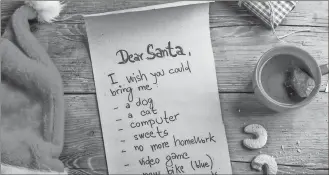 Dear Santa,
I wish you could
bring me:
- a dog
- a cat
- computer
- sweets
- no more homework
- video game
- new bike (blue)